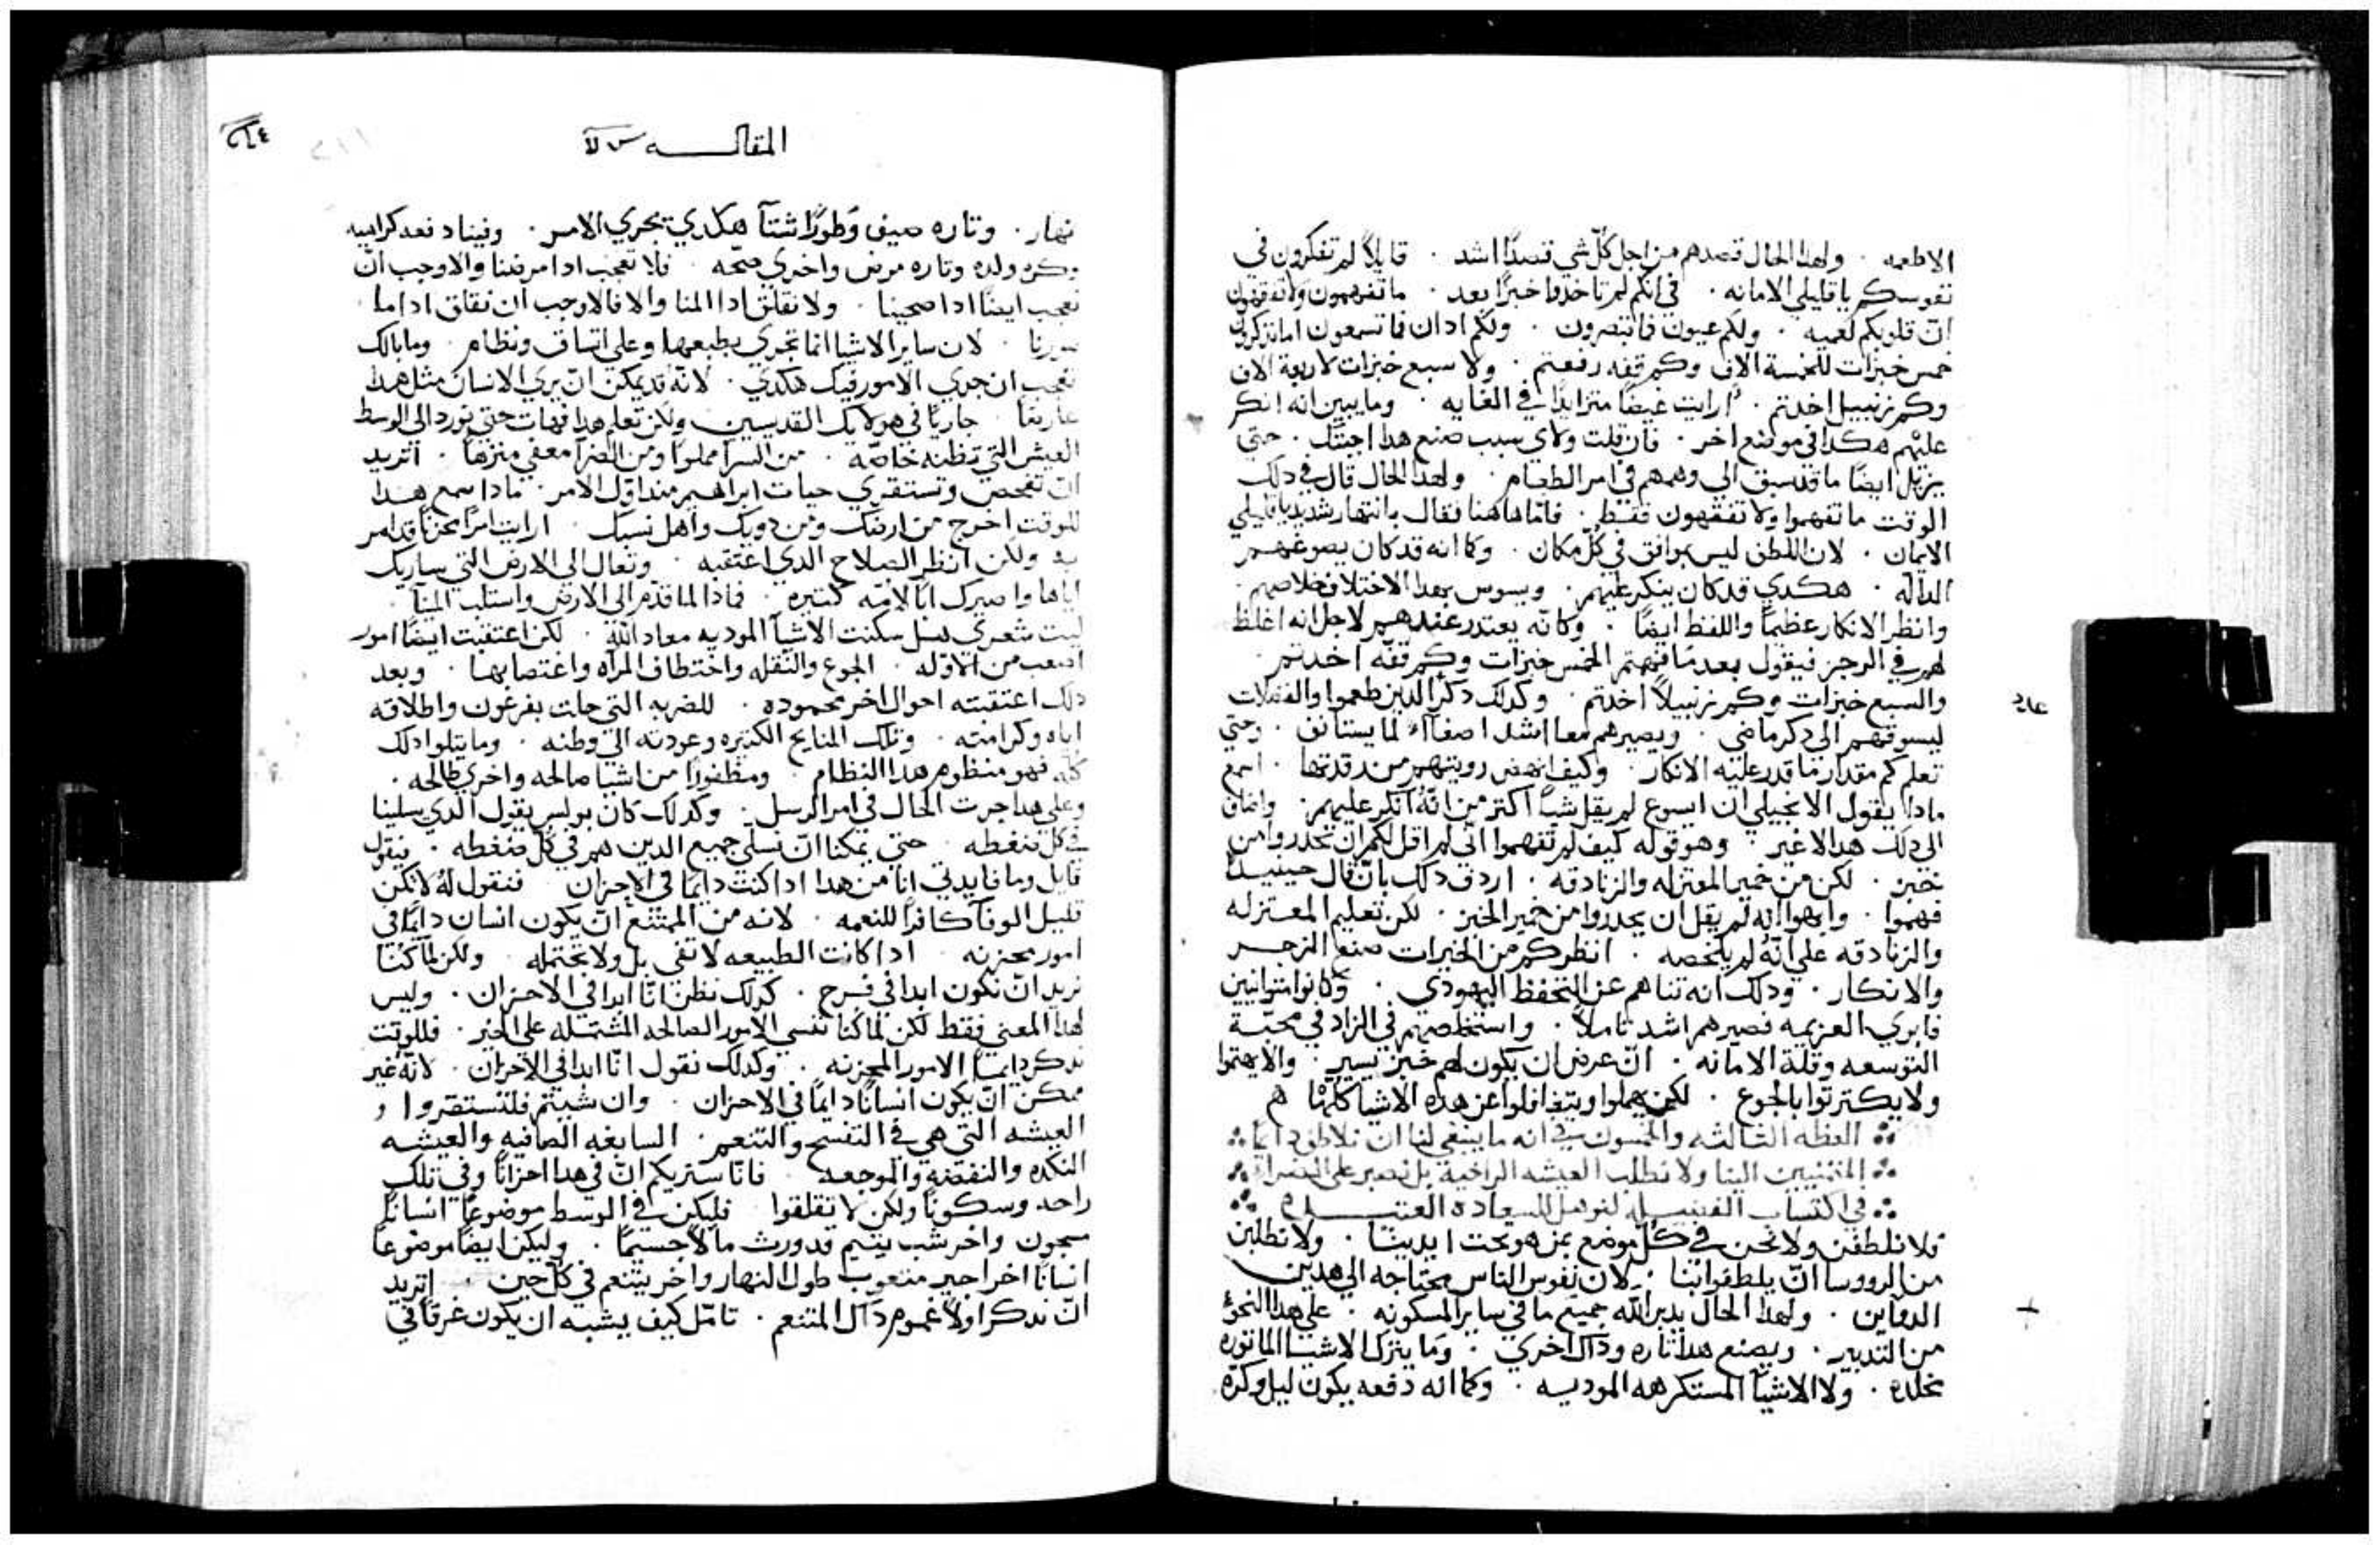 الاطعمه . ولهدا الحال قصدهم من اجل كل شي قصدًا اشد . قايلاً لم تفكرون في
نفوسكم يا قليلي الامانه . في انكم لم تاخدوا خبزًا بعد . ما تفهمون ولا تفقهون
ان قلوبكم لعميه . ولكم عيون فما تبصرون . ولكم ادان فما تسمعون اما تدكرون
خمس خبزات للخمسة الاف وكم قفه رفعتم . ولا سبع خبزات لاربعة الاف
وكم زنبيل اخدتم . ارايت غيضًا متزايدًا في الغايه . وما يبين انه انكر
عليهم هكدا في موضع اخر . فان قلت ولاي سبب صنع هدا اجبتك . حتي
يزيل ايضًا ما قد سبق الي وهمهم في امر الطعام . ولهدا الحال قال في دلك
الوقت ما تفهموا ولا تفقهون فقط . فاما هاهنا فقال بانتهار شديد يا قليلي
الايمان . لان اللطف ليس بوافق في كل مكان . وكما انه قد كان يصوغهم
الداله . هكدي قد كان ينكر عليهم . ويسوس بهدا الاختلاف خلاصهم .
وانظر الانكار عظمًا واللفظ ايضًا . وكانه يعتدر عندهم لاجل انه اغلظ
لهم في الزجر فيقول بعد ما فهمتم الخمس خبزات وكم قفه اخدتم .
والسبع خبزات وكم زنبيلاً اخدتم . وكدلك دكر الدين طعموا والفضلات
ليسوقهم الي دكر ماضي . ويصيرهم معا اشد اصغاآء لما يستانف . وحتي
تعلم كم مقدار ما قدر عليه الانكار . وكيف انهض رويتهم من رقدتها . اسمع
مادا يقول الانجيلي ان ايسوع لم يقل شيًا اكتر من انه انكر عليهم . واضاف
الي دلك هدا لا غير . وهو قوله كيف لم تفهموا اني لم اقل لكم ان تحدروا من
خبز . لكن من خمير المعتزله والزنادقه . اردف دلك بان قال حينيد
فهموا . وايهوا انه لم يقل ان يحدروا من خمير الخبز . لكن تعليم المعتزله
والزنادقه علي انه لم يلخصه . انظر كم من الخيرات صنع الزجر
والانكار . ودلك انه تناهم عن التحفظ اليهودي . وكانوا متوانيين
فابري العزيمه فصيرهم اشد تاملاً . واستخلصهم في الزاد في محبة
التوسعه وقلة الامانه . ان عرض ان يكون لهم خبز يسير . والا يهتموا
ولا يكترتوا بالجوع . لكن يهملوا ويتغافلوا عن هده الاشيا كلها هم
العظه التالته والخمسون في انه ما ينبغي لنا ان نلاطف دايمًا
المنتميين الينا ولا نطلب العيشه الراخية بل نصبر علي الضراء
في اكتساب الفضيله لنوهل للسعاده العتيده
فلا نلطفن ولا نحن في كل موضع بمن هو تحت ايدينا . ولا نطلبن
من الرووسا ان يلطفوا بنا . لان نفوس الناس محتاجه الي هدين
الدوآين . ولهدا الحال يدبر الله جميع ما في ساير المسكونه . علي هدا النحو
من التدبير . ويصنع هدا تاره وداك اخري . وما يترك الاشيا الماتوره
مخلده . ولا الاشيآ المستكرهه الموديه . وكما انه دفعه يكون ليل وكره
عاد
المقاله
نهار . وتاره صيف وطورًا شتآ هكدي تجري الامر . وفينا دفعه كراهيه
وكره ولده وتاره مرض واخري صحه . فلا تعجب ادا مرضنا والاوجب ان
تعجب ايضًا ادا صحينا . ولا نقلق ادا المنا والا فالاوجب ان نقلق ادا ما
سررنا . لان ساير الاشيا انما تجري بطبعها وعلي اتساق ونظام . وما بالك
تعجب ان جري الامور فيك هكدي . لانه قد يمكن ان يري الانسان مثل هدا
عارضًا . جاريًا في هولايك القديسين ولكن تعلم هدا فهات حتي نورد الي الوسط
العيش التي تظنه خاصه . من السرا مملوا ومن الضرا معفي منزها . اتريد
ان تفحص وتستقري حيات ابراهيم مند اول الامر . مادا سمع هدا
للوقت اخرج من ارضك ومن دويك واهل نسبك . ارايت امرًا محزنًا قد امر
به ولكن انظر الصلاح الدي اعتقبه . وتعال الي الارض التي ساريك
اياها واصيرك ابًا لامه كتيره . فمادا لما قدم الي الارض واستلب المينآ .
ليت شعري هل سكنت الاشيآ الموديه معاد الله . لكن اعتقبت ايضًا امور
اصعب من الاوله . الجوع والنقله واختطاف المرآه واغتصابها . وبعد
دلك اعتقبته احوال اخر محموده . للضربه التي حلت بفرعون واطلاقه
اياه وكرامته . وتلك المنايح الكتيره وعودته الي وطنه . وما يتلوا دلك
كله فهو منظوم هدا النظام . ومظفورًا من اشيا صالحه واخري طالحه .
وعلي هدا جرت الحال في امر الرسل . وكدلك كان بولس يقول الدي يسلينا
في كل ضغطه . حتي يمكنا ان نسلي جميع الدين هم في كل ضغطه . فيقول
قايل وما فايدتي انا من هدا ادا كنت دايمًا في الاحزان . فنقول له لا تكن
قليل الوفآ كافرًا للنعمه . لانه من الممتنع ان يكون انسان دايمًا في
امور محزنه . ادا كانت الطبيعه لا تفي بل ولا تحتمله . ولكن لما كنا
نريد ان نكون ابدا في فرح . كدلك نظن انا ابدا في الاحزان . وليس
لهدا المعني فقط لكن لما كنا ننسي الامور الصالحه المشتمله علي الخير . فللوقت
ندكر دايمًا الامور المحزنه . وكدلك نقول انا ابدا في الاحزان . لانه غير
ممكن ان يكون انسانًا دايمًا في الاحزان . وان شيتم فلتستقروا
العيشه التي هي في التفسح والتنعم . السابغه الصافيه والعيشه
النكده والنغصه والموجعه . فانا سنريكم ان في هدا احزانًا وفي تلك
راحه وسكونًا ولكن لا تقلقوا . فليكن في الوسط موضوعًا انسانًا
مسجون واخر شب يتيم قد ورث مالاً جسيمًا . وليكن ايضًا موضوعًا
انسانًا اخر اجير متعوب طول النهار واخر يتنعم في كل حين . اتريد
ان ندكر اولاً غموم داك المتنعم . تامل كيف يشبه ان يكون غرقًا في